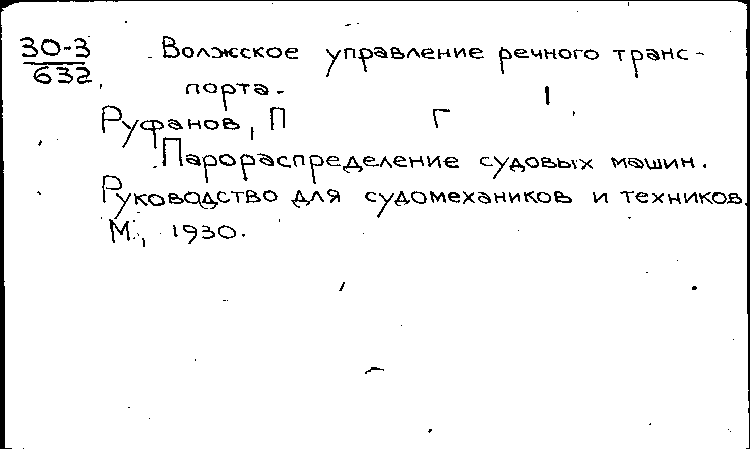 30-3 Волжское управление речного транс-
632 порта.
Руфанов, П Г
Парораспределение судовых машин.
Руководство для судомехаников и техников.
М., 1930.